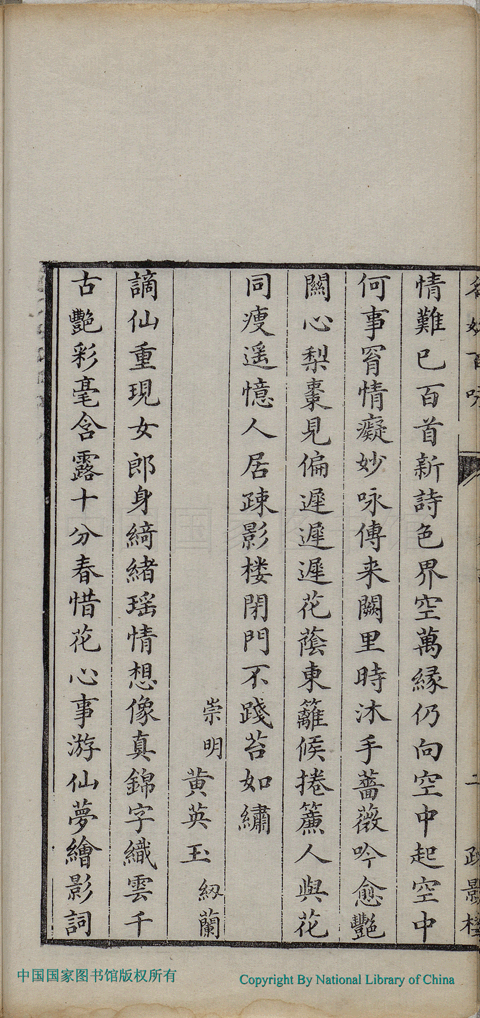 名妙百咏
二
疎影楼
情難已百首新詩色界空萬緣仍向空中起空中
何事宵情癡妙咏傳来闕里時沐手薔薇吟愈艷
關心梨棗見偏遲遲遲花蔭東籬候捲簾人與花
同瘦遥憶人居疎影楼閉門不踐苔如繡
崇明 黄英玉 紉蘭
謫仙重現女郎身綺緒瑶情想像真錦字織雲千
古艷彩毫含露十分春惜花心事游仙夢繪影詞
中国国家图书馆版权所有
Copyright By National Library of China